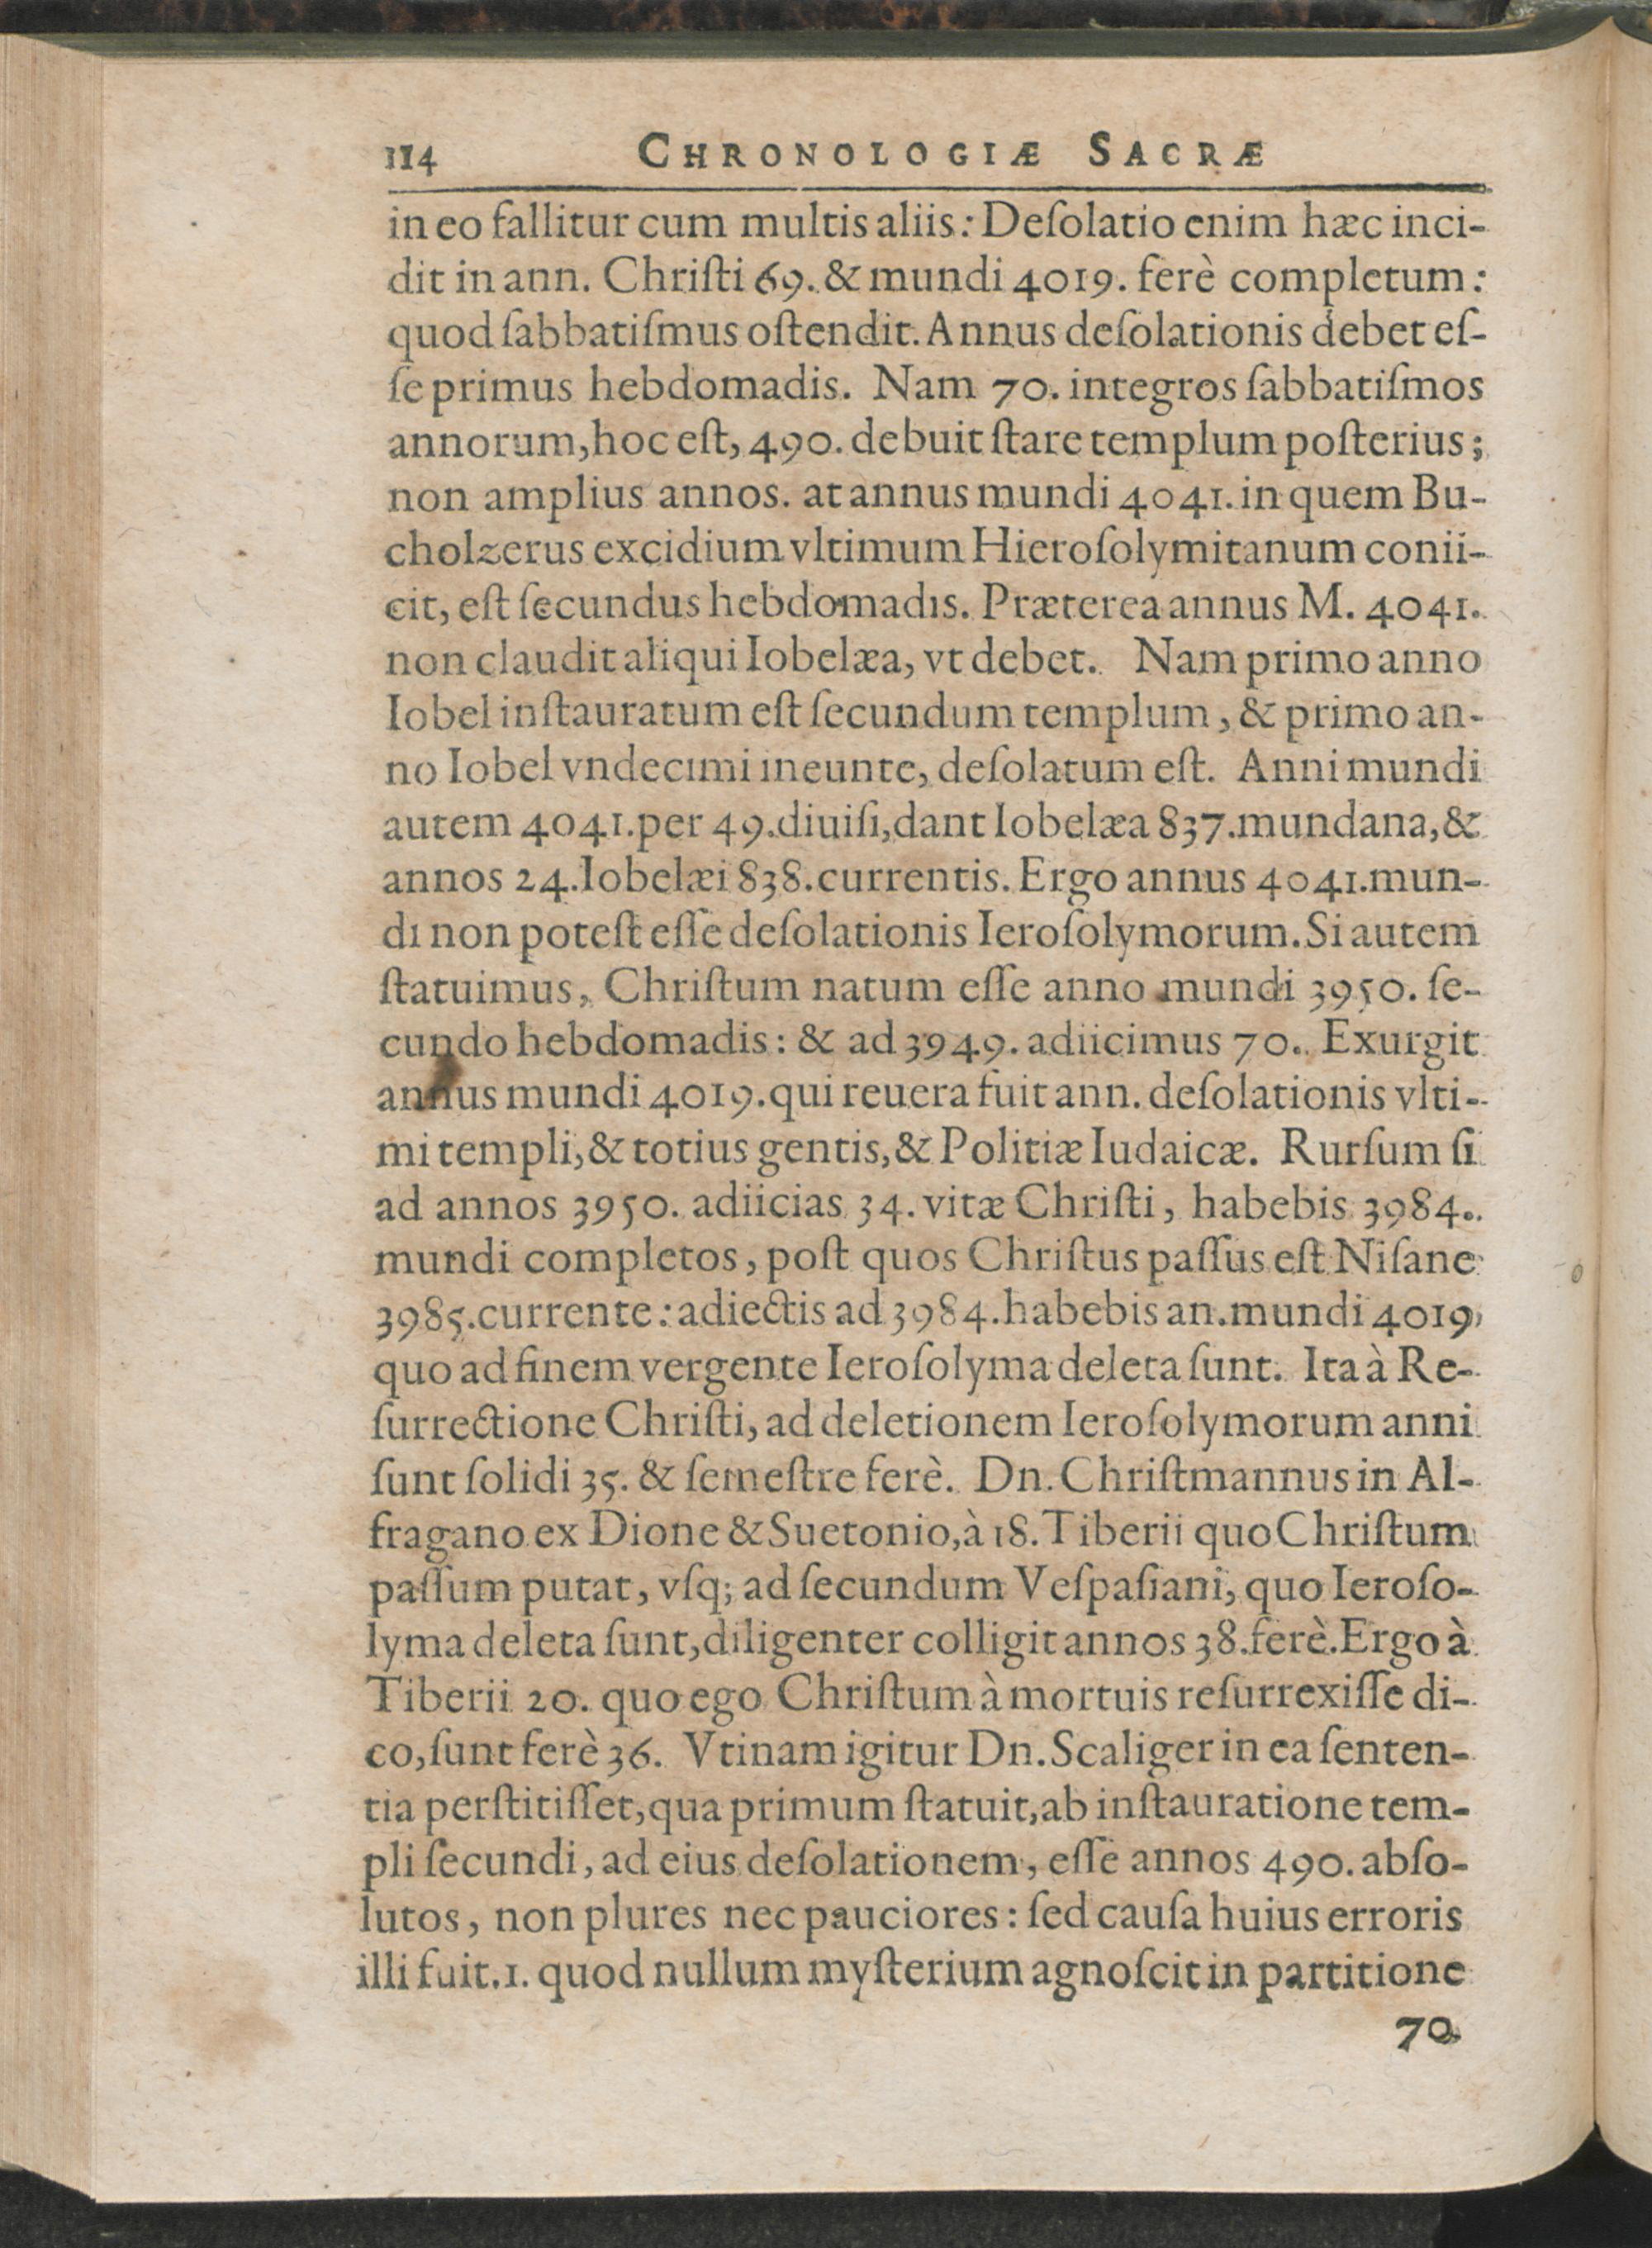 114 CHRONOLOGIÆ SACRÆ
in eo fallitur cum multis aliis: Deſolatio enim hæc inci-
dit in ann. Chriſti 69. & mundi 4019. ferè completum:
quod ſabbatiſmus oſtendit. Annus deſolationis debet eſ-
ſe primus hebdomadis. Nam 70. integros ſabbatiſmos
annorum, hoc eſt, 490. debuit ſtare templum poſterius;
non amplius annos. at annus mundi 4041. in quem Bu-
cholzerus excidium vltimum Hieroſolymitanum conii-
cit, eſt ſecundus hebdomadis. Præterea annus M. 4041.
non claudit aliqui Iobelæa, vt debet. Nam primo anno
Iobel inſtauratum eſt ſecundum templum, & primo an-
no Iobel vndecimi ineunte, deſolatum eſt. Anni mundi
autem 4041. per 49. diuiſi, dant Iobelæa 837. mundana, &
annos 24. Iobelæi 838. currentis. Ergo annus 4041. mun-
di non poteſt eſſe deſolationis Ieroſolymorum. Si autem
ſtatuimus, Chriſtum natum eſſe anno mundi 3950. ſe-
cundo hebdomadis: & ad 3949. adiicimus 70. Exurgit
annus mundi 4019. qui reuera fuit ann. deſolationis vlti-
mi templi, & totius gentis, & Politiæ Iudaicæ. Rurſum ſi
ad annos 3950. adiicias 34. vitæ Chriſti, habebis 3984.
mundi completos, poſt quos Chriſtus paſſus eſt Niſane
3985. currente: adiectis ad 3984. habebis an. mundi 4019,
quo ad finem vergente Ieroſolyma deleta ſunt. Ita à Re-
ſurrectione Chriſti, ad deletionem Ieroſolymorum anni
ſunt ſolidi 35. & ſemeſtre ferè. Dn. Chriſtmannus in Al-
fragano ex Dione & Suetonio, à 18. Tiberii quo Chriſtum
paſſum putat, vſq; ad ſecundum Veſpaſiani, quo Ieroſo-
lyma deleta ſunt, diligenter colligit annos 38. ferè. Ergo à
Tiberii 20. quo ego Chriſtum à mortuis reſurrexiſſe di-
co, ſunt ferè 36. Vtinam igitur Dn. Scaliger in ea ſenten-
tia perſtitiſſet, qua primum ſtatuit, ab inſtauratione tem-
pli ſecundi, ad eius deſolationem, eſſe annos 490. abſo-
lutos, non plures nec pauciores: ſed cauſa huius erroris
illi fuit. 1. quod nullum myſterium agnoſcit in partitione
70.